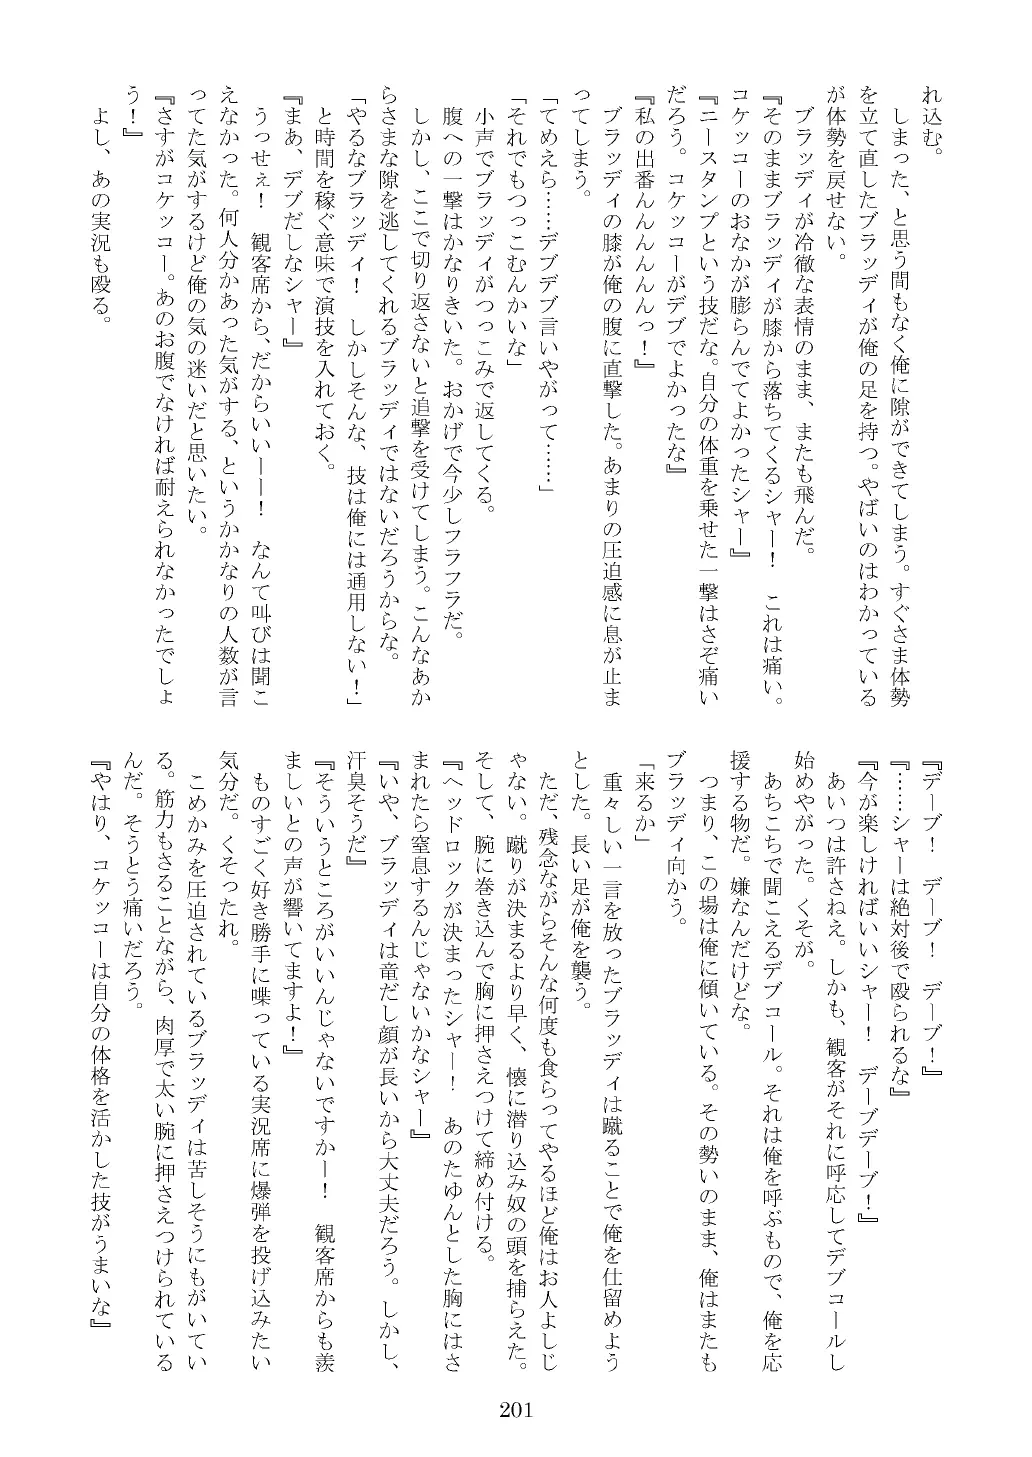 れ込む。
　しまった、と思う間もなく俺に隙ができてしまう。すぐさま体勢
を立て直したブラッディが俺の足を持つ。やばいのはわかっている
が体勢を戻せない。
　ブラッディが冷徹な表情のまま、またも飛んだ。
『そのままブラッディが膝から落ちてくるシャー！　これは痛い。
コケッコーのおなかが膨らんでてよかったシャー』
『ニースタンプという技だな。自分の体重を乗せた一撃はさぞ痛い
だろう。コケッコーがデブでよかったな』
『私の出番んんんんんっ！』
　ブラッディの膝が俺の腹に直撃した。あまりの圧迫感に息が止ま
ってしまう。
「てめえら……デブデブ言いやがって……」
「それでもつっこむんかいな」
　小声でブラッディがつっこみで返してくる。
　腹への一撃はかなりきいた。おかげで今少しフラフラだ。
　しかし、ここで切り返さないと追撃を受けてしまう。こんなあか
らさまな隙を逃してくれるブラッディではないだろうからな。
「やるなブラッディ！　しかしそんな、技は俺には通用しない！」
　と時間を稼ぐ意味で演技を入れておく。
『まあ、デブだしなシャー』
　うっせぇ！　観客席から、だからいいーー！　なんて叫びは聞こ
えなかった。何人分かあった気がする、というかかなりの人数が言
ってた気がするけど俺の気の迷いだと思いたい。
『さすがコケッコー。あのお腹でなければ耐えられなかったでしょ
う！』
　よし、あの実況も殴る。
『デーブ！　デーブ！　デーブ！』
『……シャーは絶対後で殴られるな』
『今が楽しければいいシャー！　デーブデーブ！』
　あいつは許さねえ。しかも、観客がそれに呼応してデブコールし
始めやがった。くそが。
　あちこちで聞こえるデブコール。それは俺を呼ぶもので、俺を応
援する物だ。嫌なんだけどな。
　つまり、この場は俺に傾いている。その勢いのまま、俺はまたも
ブラッディ向かう。
「来るか」
　重々しい一言を放ったブラッディは蹴ることで俺を仕留めよう
とした。長い足が俺を襲う。
　ただ、残念ながらそんな何度も食らってやるほど俺はお人よしじ
ゃない。蹴りが決まるより早く、懐に潜り込み奴の頭を捕らえた。
そして、腕に巻き込んで胸に押さえつけて締め付ける。
『ヘッドロックが決まったシャー！　あのたゆんとした胸にはさ
まれたら窒息するんじゃないかなシャー』
『いや、ブラッディは竜だし顔が長いから大丈夫だろう。しかし、
汗臭そうだ』
『そういうところがいいんじゃないですかー！　観客席からも羨
ましいとの声が響いてますよ！』
　ものすごく好き勝手に喋っている実況席に爆弾を投げ込みたい
気分だ。くそったれ。
　こめかみを圧迫されているブラッディは苦しそうにもがいてい
る。筋力もさることながら、肉厚で太い腕に押さえつけられている
んだ。そうとう痛いだろう。
『やはり、コケッコーは自分の体格を活かした技がうまいな』
201